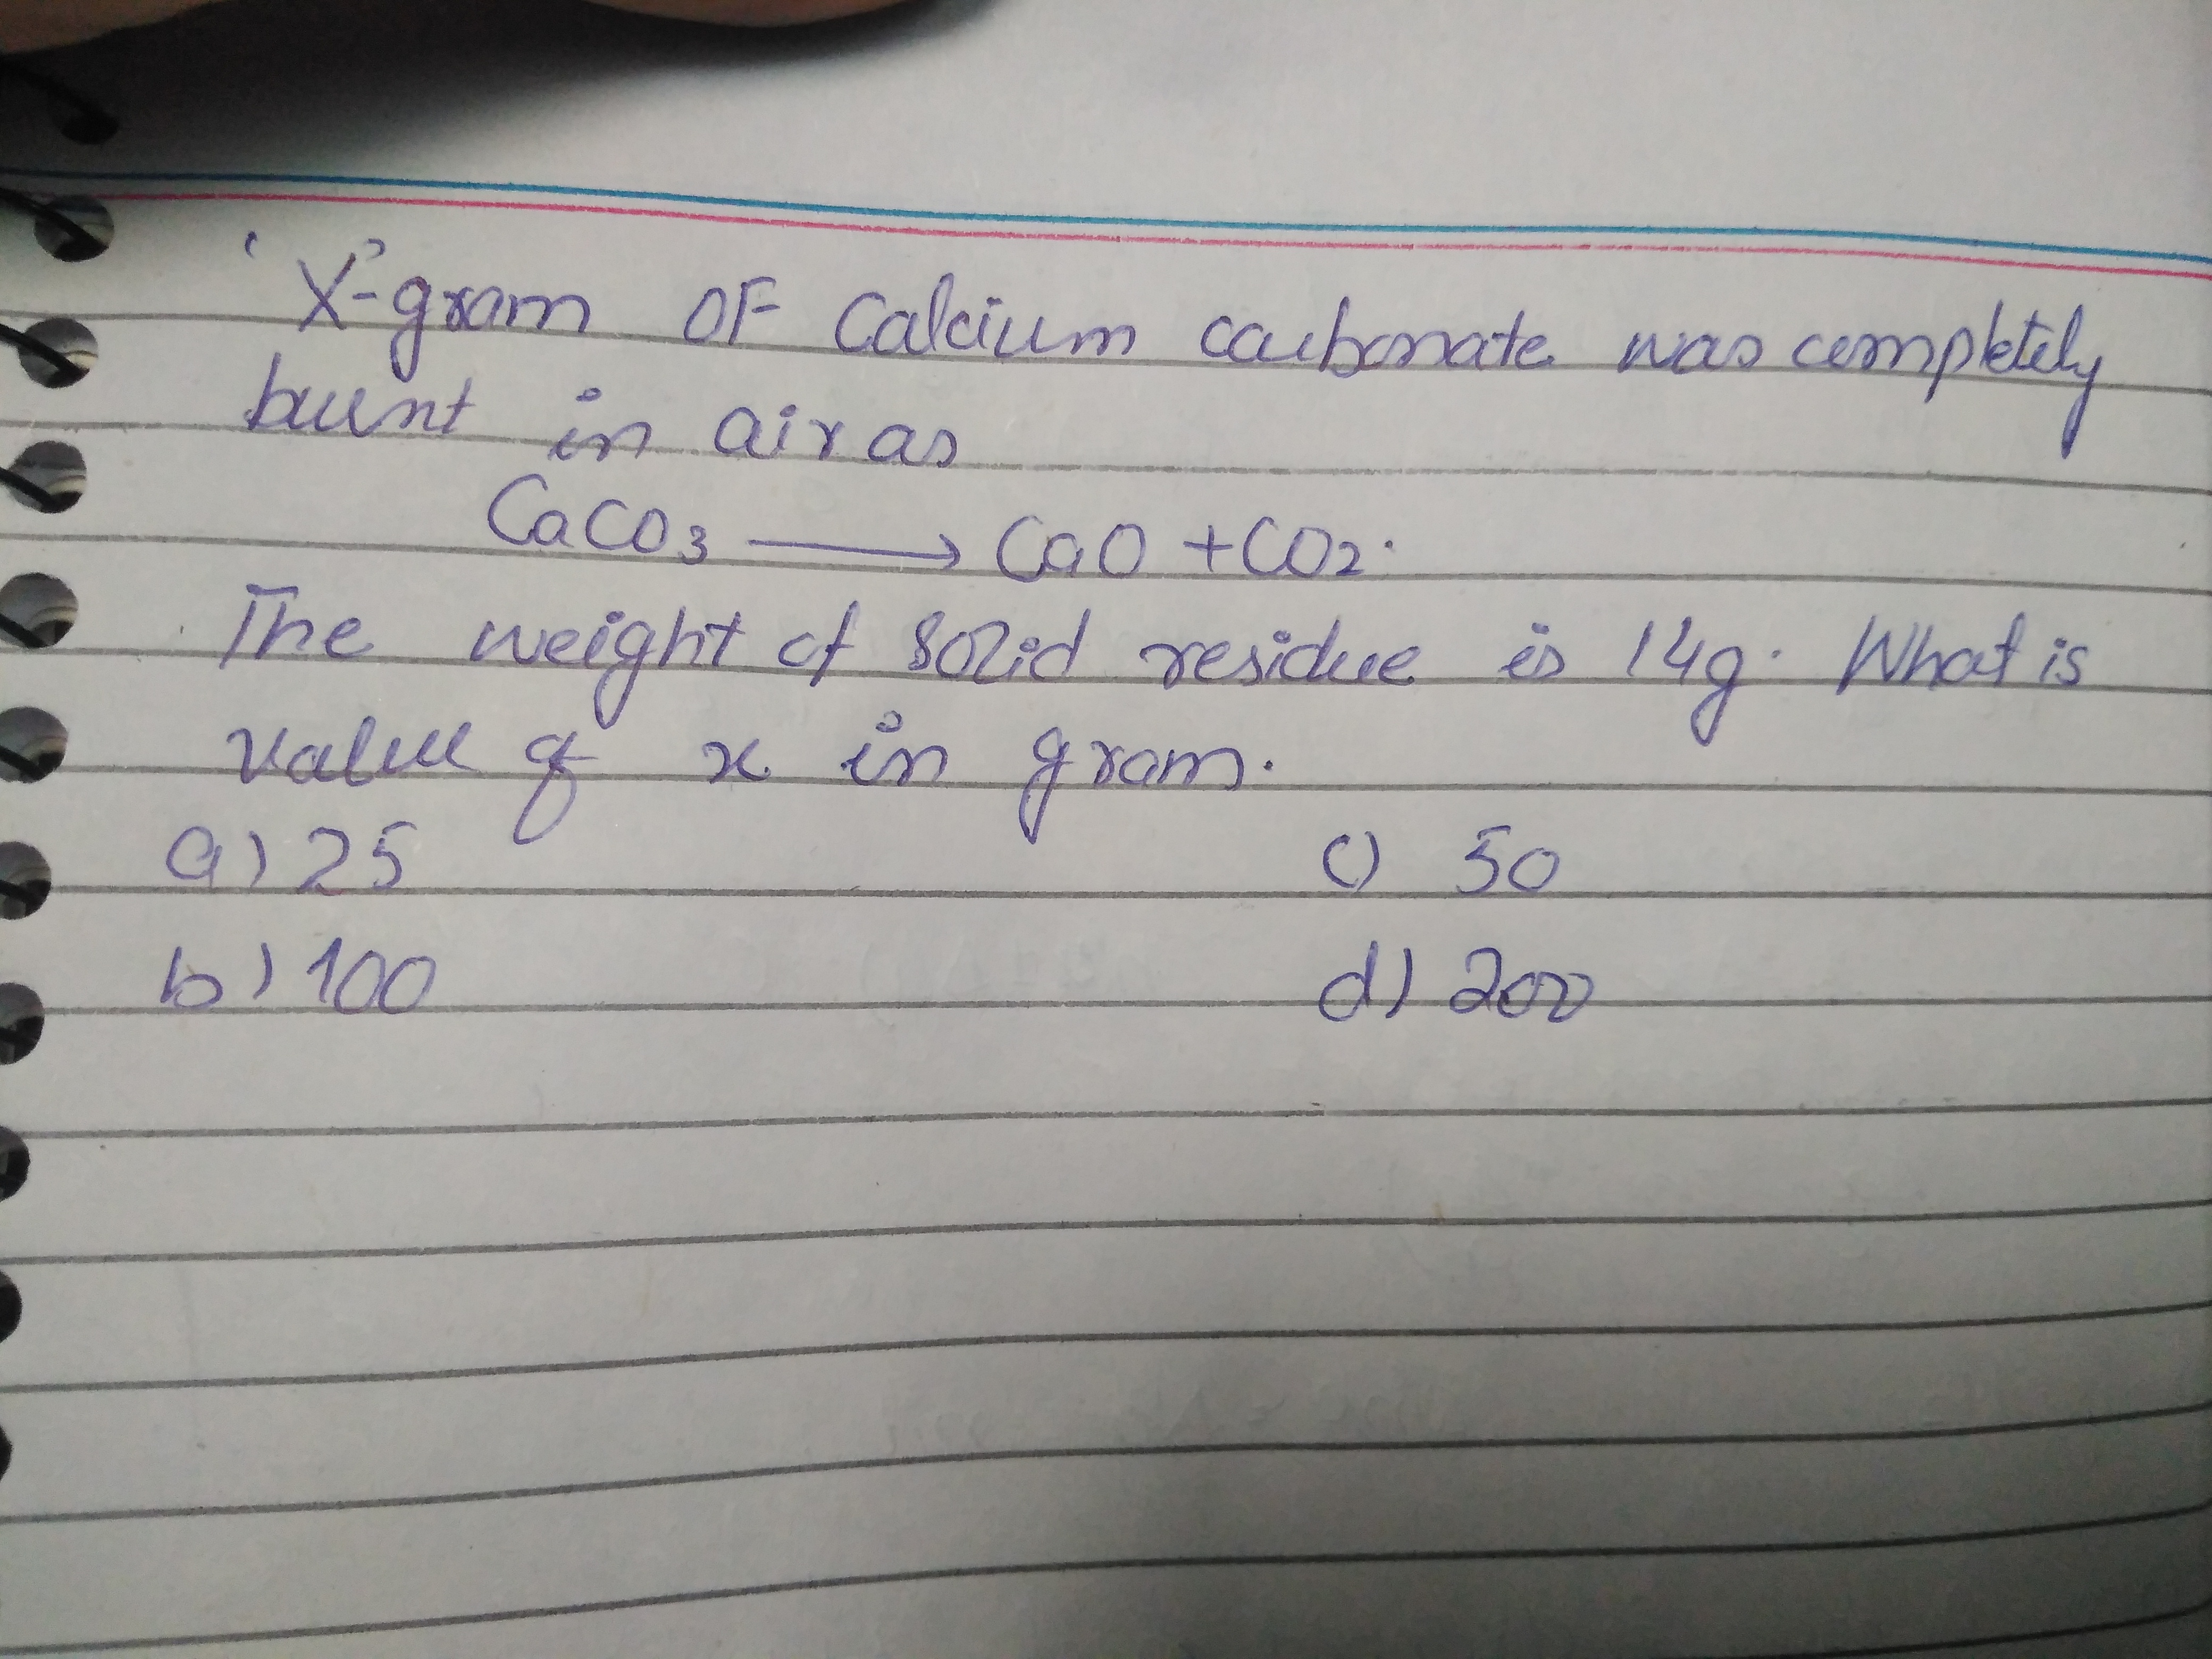 'X'-gram OF Calcium carbonate was completely
burnt in air as
CaCO3 ⟶ CaO + CO2.
The weight of solid residue is 14g. What is
value of x in gram.
a) 25 c) 50
b) 100 d) 200